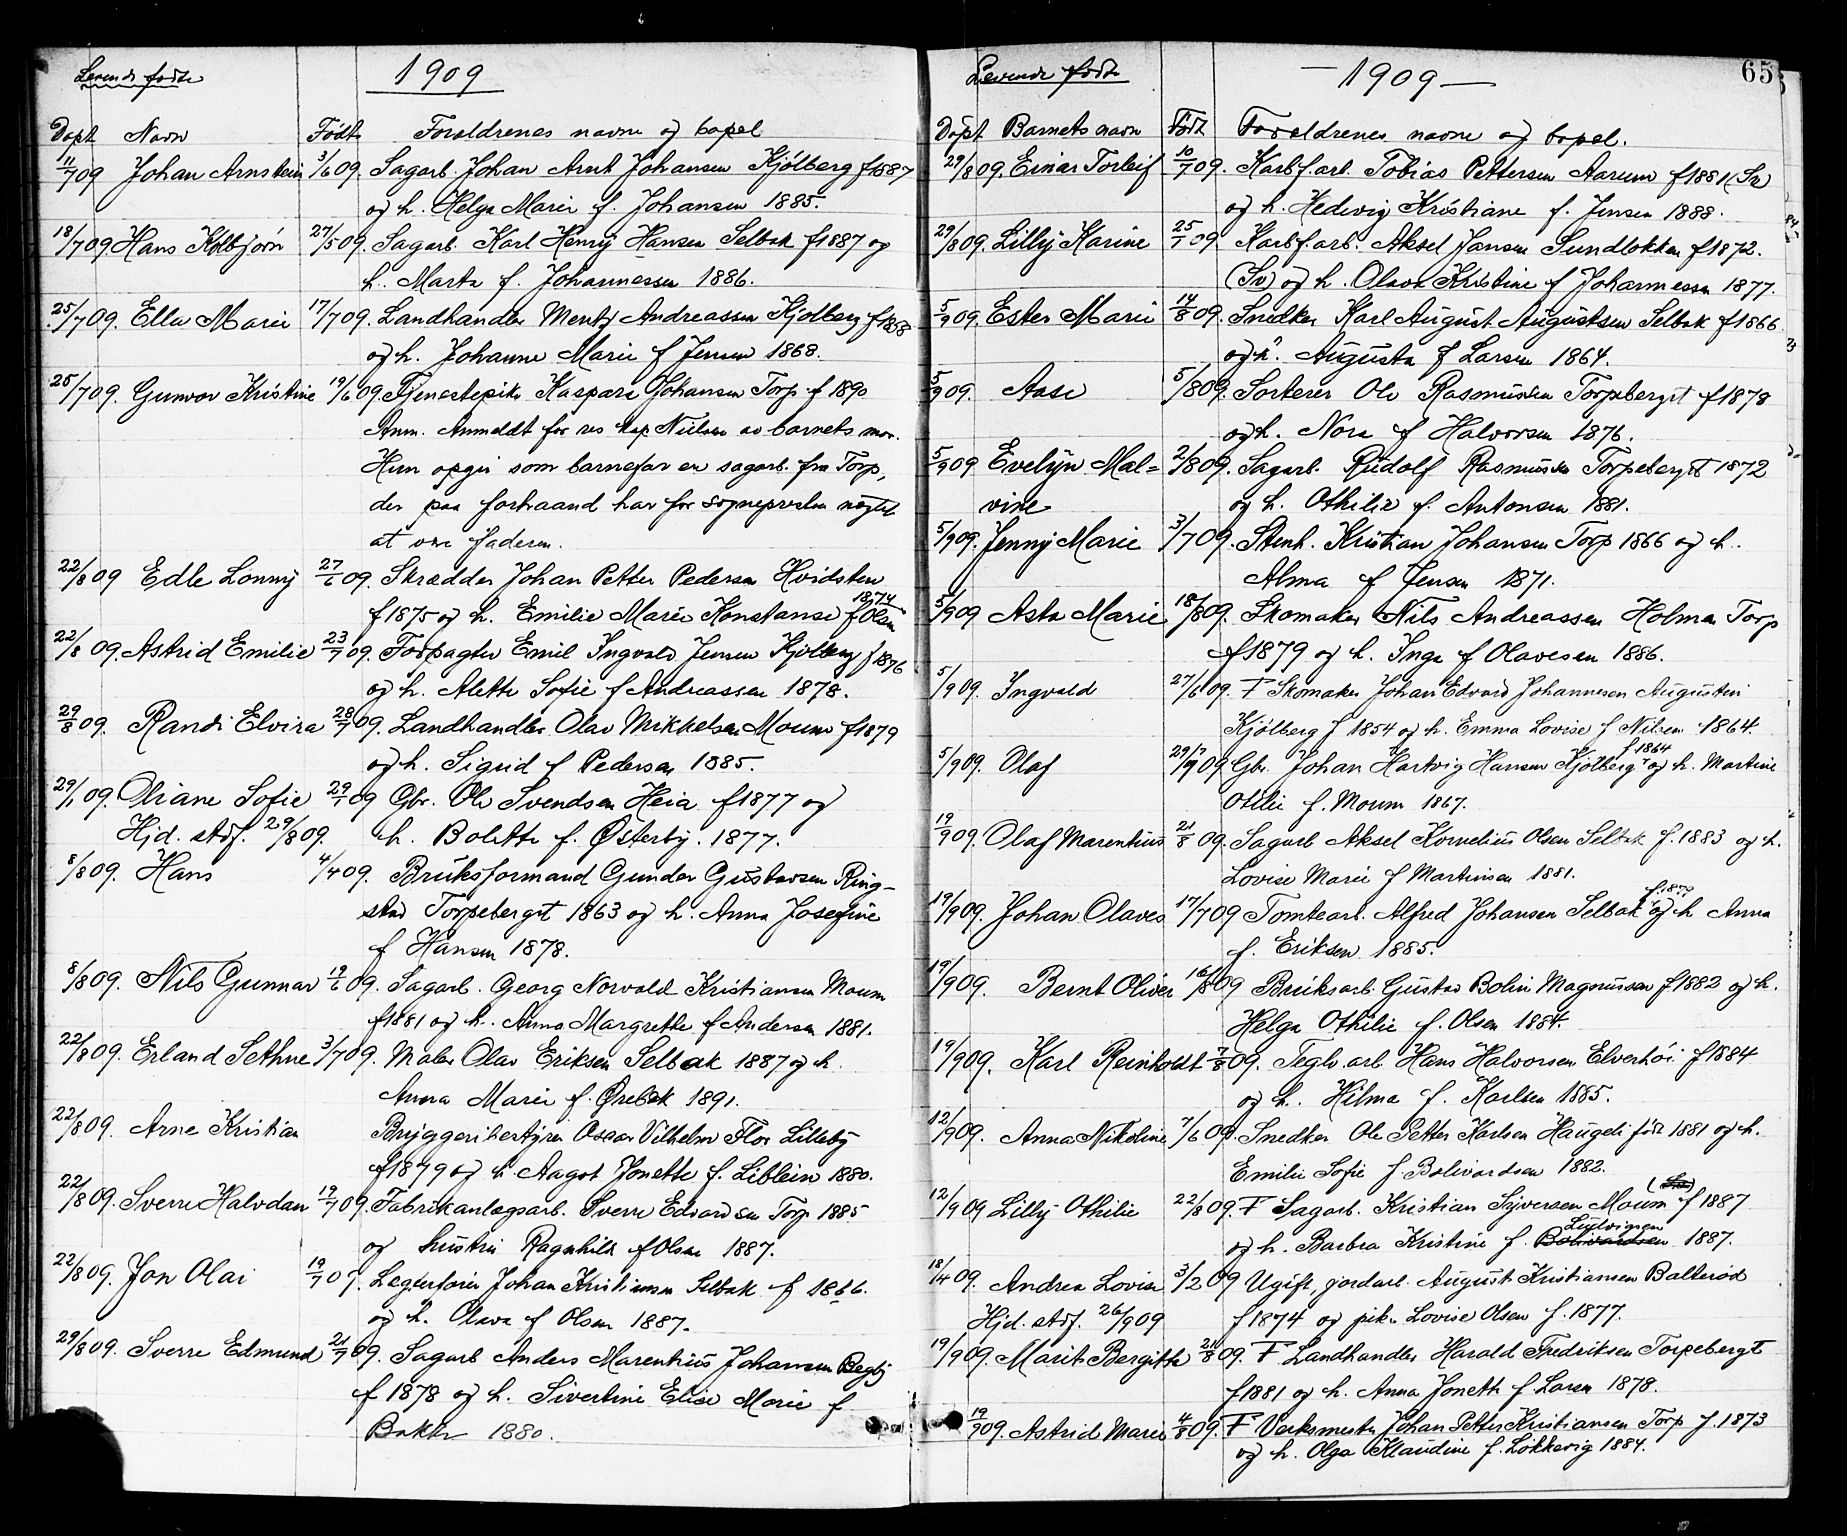 Levende fødte 1909
Døpt Navn Født Foreldrenes navne og bopel
11/7 09 Johan Arnstein 3/6 09. Sagarb. Johan Arnt Johansen Kjølberg f 1887
og h. Helga Marie f. Johansen 1885.
18/7 09 Hans Kolbjørn 27/5 09. Sagarb. Karl Henry Hansen Selbak f 1887 og
h. Marta f. Johannessen 1886.
25/7 09. Ella Marie 17/7 09. Landhandler Mentz Andreassen Kjølberg f 1868
og h. Johanne Marie f Jensen 1868.
25/7 09. Gunvor Kristine 19/6 09. Tjenestepike Kaspara Johansen Torp f 1890
Anm. Anmeldt for res kap Nielsen av barnets mor.
Hun opgir som barnefar en sagarb. fra Torp,
der paa forhaand har for sogneprsten negtet
at være faderen.
22/8 09 Edle Lonny 27/6 09. Skrædder Johan Petter Pedersen Hvidsten
f 1875 og h. Emilie Marie Konstanse f Olsen 1874
22/8 09. Astrid Emilie 23/7 09. Forpagter Emil Ingvald Jensen Kjølberg f 1876
og h. Alette Sofie f Andreassen 1878.
29/8 09. Randi Elvira 28/7 09. Landhandler Olav Mikkelsen Moum f 1879
og h. Sigrid f Pedersen 1885.
29/1 09. Oliane Sofie 29/1 09 Gbr. Ole Svendsen Heia f 1877 og
Hjd. stdf. 29/8 09. h. Bolette f. Østerby. 1877.
8/8 09. Hans 4/4 09. Bruksformand Gunder Gustavsen Ring-
stad Torpeberget 1863 og h. Anna Josefine
f Hansen 1878.
8/8 09. Nils Gunnar 19/6 09. Sagarb. Georg Norvald Kristiansen Moum
f 1881 og h. Anna Margrethe f Andersen 1881.
22/8 09. Erland Sethne 3/7 09. Maler Olav Eriksen Selbak 1887 og h.
Anna Marie f. Ørebek 1891.
22/8 09. Arne Kristian Bryggeribestyrer Oscar Vilhelm Flor Lilleby
f 1879 og h. Aagot Jonette f. Liblein 1880.
22/8 09. Sverre Halvdan 19/7 09. Fabrikanlagsarb. Sverre Edvardsen Torp 1885
og hustru Ragnhild f Olsen 1887.
22/8 09. Jon Olai 19/7 09. Legerforer Johan Kristiansen Selbak f 1866.
og h. Olava f Olsen 1887.
29/8 09. Sverre Edmund 21/7 09. Sagarb Anders Marentius Johansen Begby
f 1878 og h. Sivertine Elise Marie f
Bakke 1880.
Levende fødte —1909— 65
Døpt Barnets navn Født Foreldrenes navne og bopel.
29/8 09. Einar Torleif 10/7 09. Karbf.arb. Tobias Pettersen Aarum f 1881 (Sv)
og h. Hedevig Kristiane f. Jensen 1888.
29/8 09. Lilly Karine 25/7 09 Karbf.arb. Aksel Jansen Sundløkken f 1872.
(Sv) og h. Olava Kristine f Johannessen 1877.
5/9 09. Ester Marie 14/8 09. Snedker Karl August Augustsen Selbak f 1866
og h. Augusta f Larsen 1864.
5/9 09. Aase 5/8 09. Sorterer Ole Rasmussen Torpeberget f 1878
og h. Nora f Halvorsen 1876.
5/9 09 Evelyn Mal= 2/8 09. Sagarb. Rudolf Rasmussen Torpeberget 1872
vine og h. Othilie f. Antonsen 1881.
5/9 09. Jenny Marie 3/7 09. Stenh. Kristian Johansen Torp 1866 og h.
Alma f Jensen 1871.
5/9 09 Asta Marie 18/8 09. Skomaker Nils Andreassen Holmen Torp
f 1879 og h. Inga f Olavesen 1886.
5/9 09. Ingvald 27/6 09. F Skomaker Johan Edvard Johannesen Augustin
Kjølberg f 1854 og h. Emma Lovise f Nilsen 1864.
5/9 09. Olaf 29/7 09 Gbr. Johan Hartvig Hansen Kjølberg f 1864 og h. Martine
Otilie f. Moum 1867.
19/9 09. Olaf Marentius 21/8 09. Sagarb Aksel Kornelius Olsen Selbak f. 1883 og h.
Lovise Marie f Martinsen 1881.
19/9 09. Johan Olaves 17/7 09 Tomtearb. Alfred Johansen Selbak og h Anna
f. Eriksen 1885.
19/9 09. Bernt Oliver 16/8 09 Bruksarb. Gustav Bolin Magnussen f 1882 og h.
Helga Othilie f. Olsen 1884.
19/9 09. Karl Reinholdt 7/8 09. Teglv. arb. Hans Halvorsen Elverhöi f 1884
og h. Hilma f. Karlsen 1885.
12/9 09. Anna Nikoline 7/6 09. Snedker Ole Petter Karlsen Haugeli født 1881 og h.
Emilie Sofie f. Bolivardsen 1882.
12/9 09 Lilly Othilie 22/8 09. F Sagarb. Kristian Syversen Moum (Sv) f 1887
og h. Barbra Kristine f. Bolivardsen Ludvigsen 1887.
18/4 09. Andrea Lovise 3/2 09 Ugift, jordarb. August Kristiansen Balterød
Hjd. stdf. 26/9 09 f 1874 og pike Lovise Olsen f. 1877.
19/9 09. Marit Bergitte 24/8 09. F Landhandler Harald Fredriksen Torpeberget
f 1881 og h. Anna Jonette f Larsen 1878.
19/9 09. Astrid Marie 4/8 09. F Verksmester Johan Petter Kristiansen Torp f. 1873
og h. Olga Klaudine f. Løkkevig 1884.